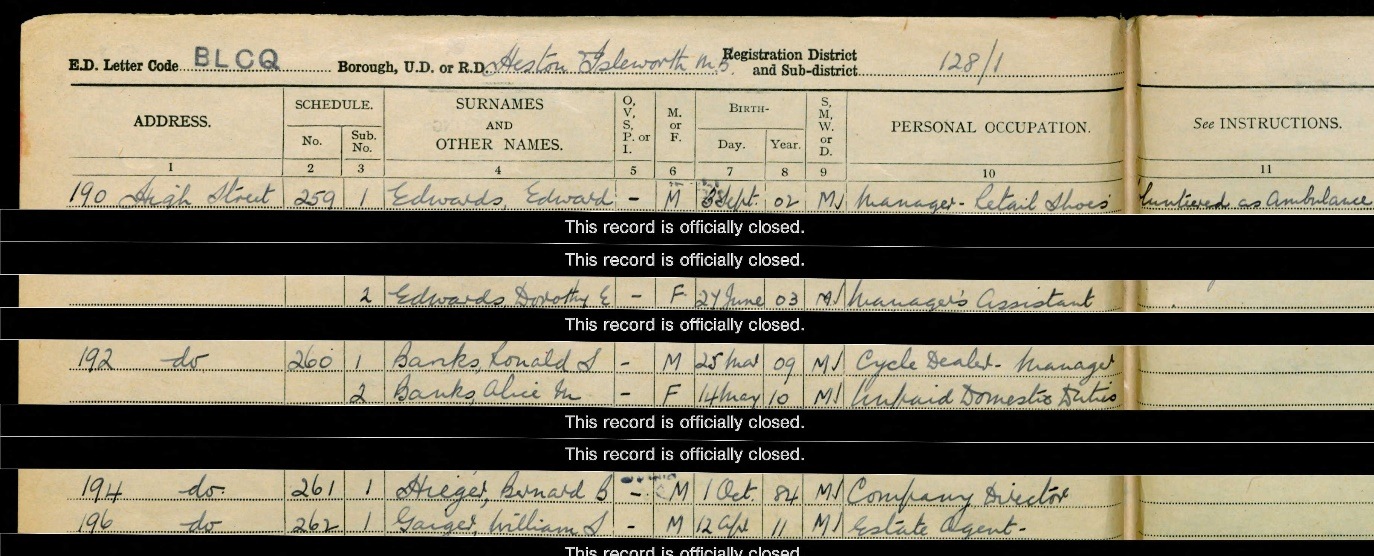 E.D. Letter Code BLCQ Borough, U.D. or R.D. Heston Isleworth M.B. Registration District and Sub-district 128/1
ADDRESS. SCHEDULE. No. Sub. No. SURNAMES AND OTHER NAMES. O, V, S, P. or I. M. or F. BIRTH- Day. Year. S, M, W. or D. PERSONAL OCCUPATION. See INSTRUCTIONS.
1 2 3 4 5 6 7 8 9 10 11
190 High Street 259 1 Edwards, Edward - M Sept. 02 M Manager - Retail Shoes as Ambulance
This record is officially closed.
This record is officially closed.
2 Edwards Dorothy E - F 27 June 03 M Manager's Assistant
This record is officially closed.
192 do 260 1 Banks, Ronald S - M 25 Mar 09 M Cycle Dealer - Manager
2 Banks, Alice M - F 14 May 10 M Unpaid Domestic Duties
This record is officially closed.
This record is officially closed.
194 do. 261 1 Bernard B - M 1 Oct. 84 M Company Director
196 do 262 1 William S - M 12 Apl 11 M Estate Agent -
This record is officially closed.